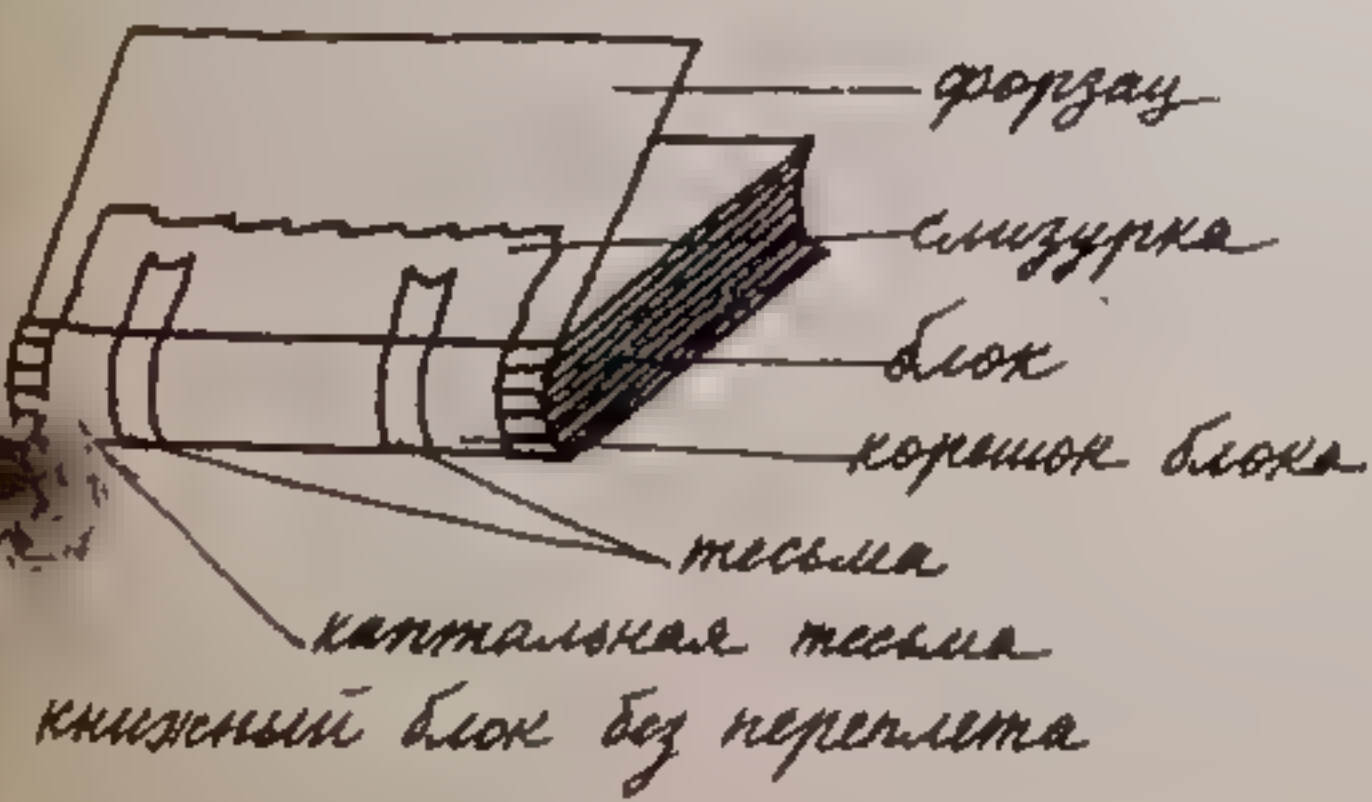 форзац
слизурка
блок
корешок блока
тесьма
каптальная тесьма
книжный блок без переплета